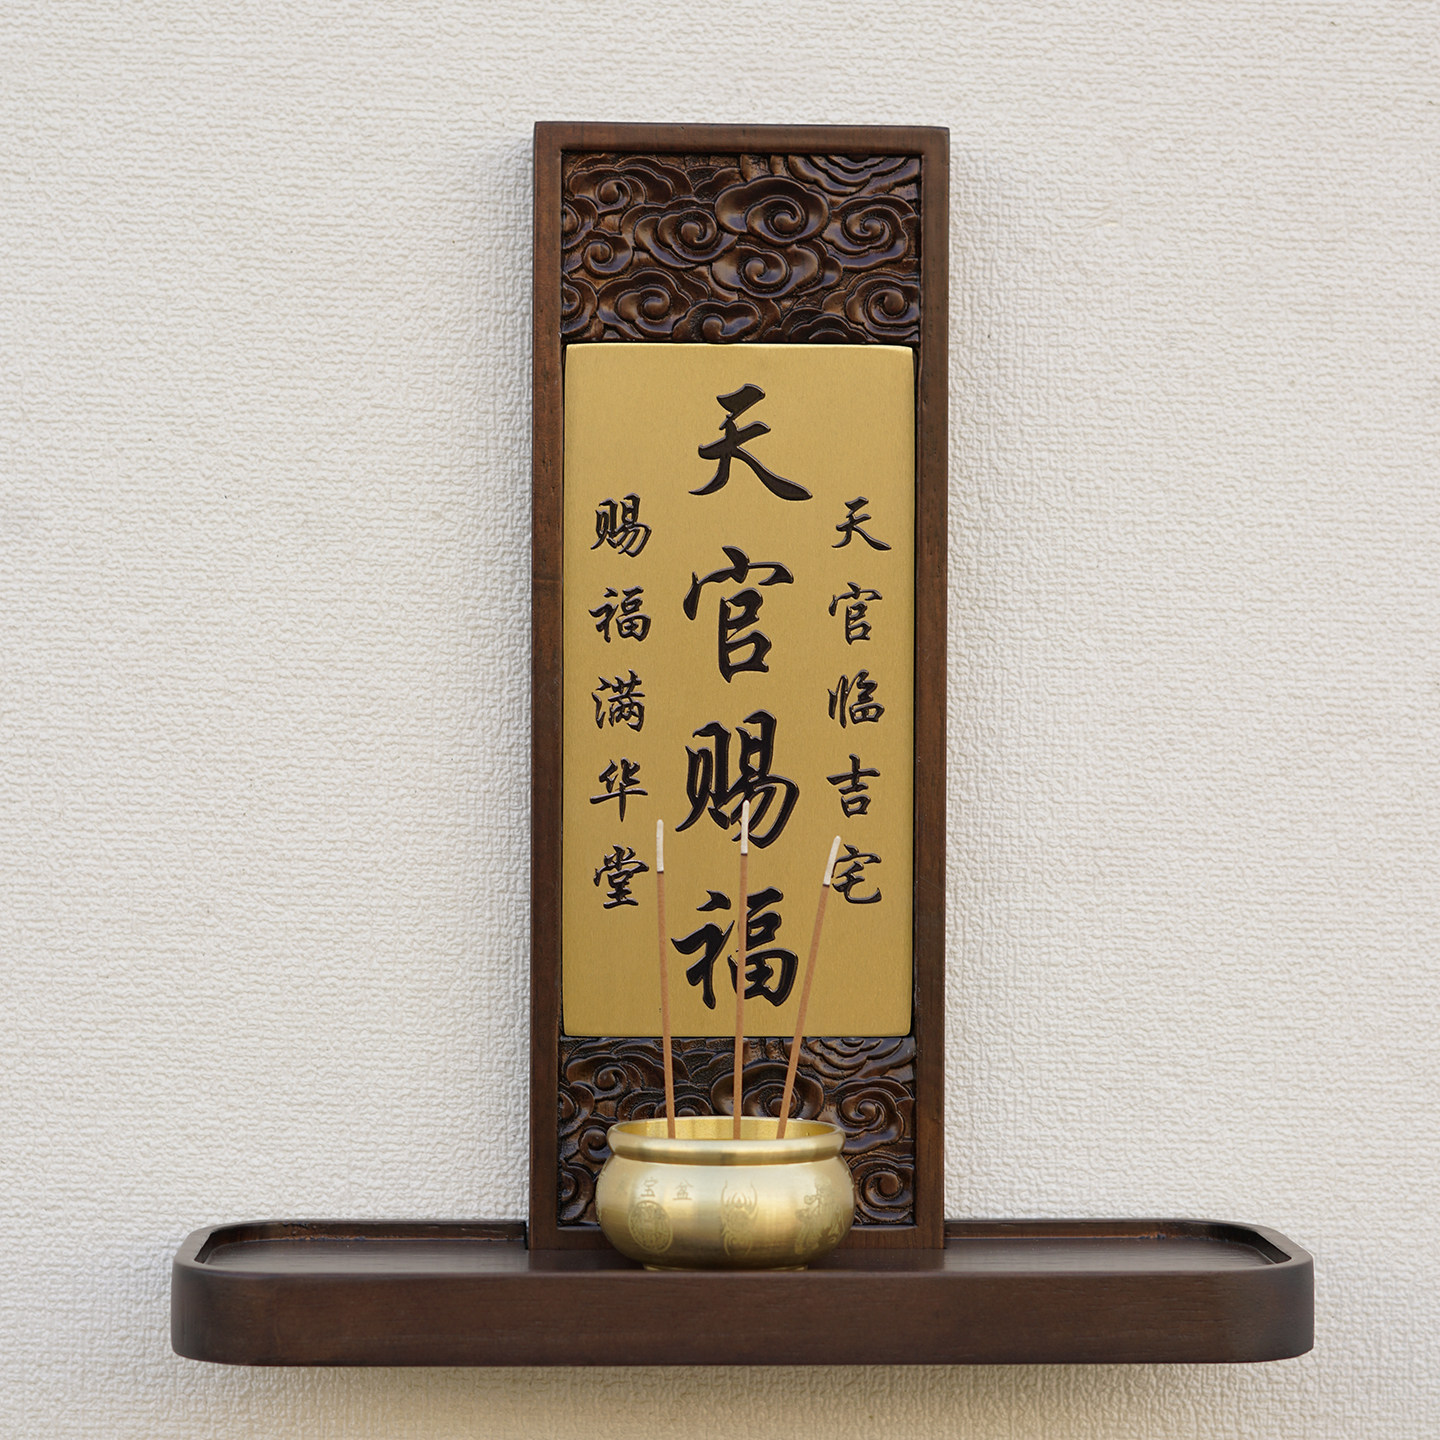 天官临吉宅
天官赐福
赐福满华堂
宝盆